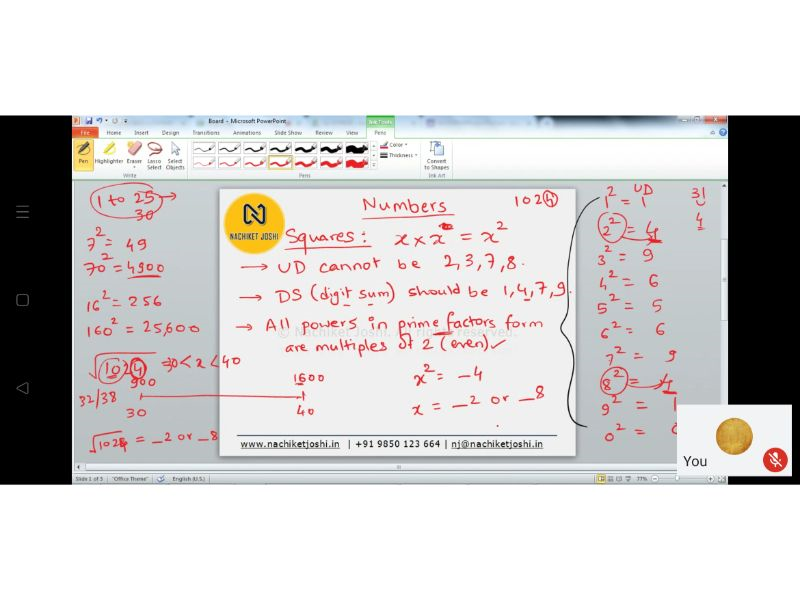 Board - Microsoft PowerPoint
Ink Tools
File Home Insert Design Transitions Animations Slide Show Review View Pens
Pen Highlighter Eraser Lasso Select Select Objects
Color
Thickness
Convert to Shapes
Write Pens Ink Art
1 to 25
30
7² = 49
70² = 4900
16² = 256
160² = 25,600
√1024 ⇒ 0 < x < 40
900 1600
32/38
30 40
√1024 = _2 or _8
NACHIKET JOSHI
Numbers
1024
Squares: x × x = x²
→ UD cannot be 2,3,7,8.
→ DS (digit sum) should be 1,4,7,9.
→ All powers in prime factors form
are multiples of 2 (even)✓
© Nachiket Joshi. All rights reserved.
x² = _4
x = _2 or _8
www.nachiketjoshi.in | +91 9850 123 664 | nj@nachiketjoshi.in
UD
1² = 1
2² = 4
3² = 9
4² = 6
5² = 5
6² = 6
7² = 9
8² = 4
9² = 1
0² =
31
4
You
Slide 1 of 5 "Office Theme" English (U.S.) 77%